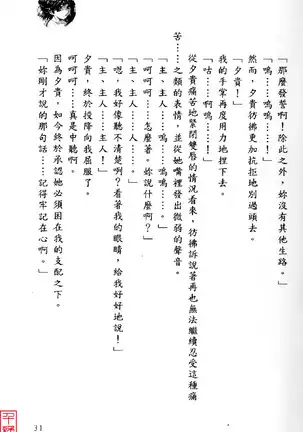 「那麼發誓啊！除此之外，妳沒有其他生路。」
「嗚……嗚嗚……！」
然而，夕貴彷彿更加抗拒地別過頭去。
「夕貴！」
我的手掌再度用力地捏下去。
「咕……啊嗚……！」
從夕貴痛苦地緊閉雙唇的情況看來，彷彿訴說著再也無法繼續忍受這種痛
苦……之類的表情，並從她嘴裡發出微弱的聲音。
「主、主人……嗚……嗚嗚……。」
「呵呵呵……怎麼著。妳說什麼啊？」
「主、主人……主人……。」
「嗯，我好像聽不清楚啊？看著我的眼睛，給我好好地說！」
「主、主人……主人！」
夕貴，終於投降向我屈服了。
「呵呵呵……真是中聽啊。」
因為夕貴，如今終於承認她必須困在我的支配之下。
「妳剛才說的那句話……記得牢記在心啊。」
31